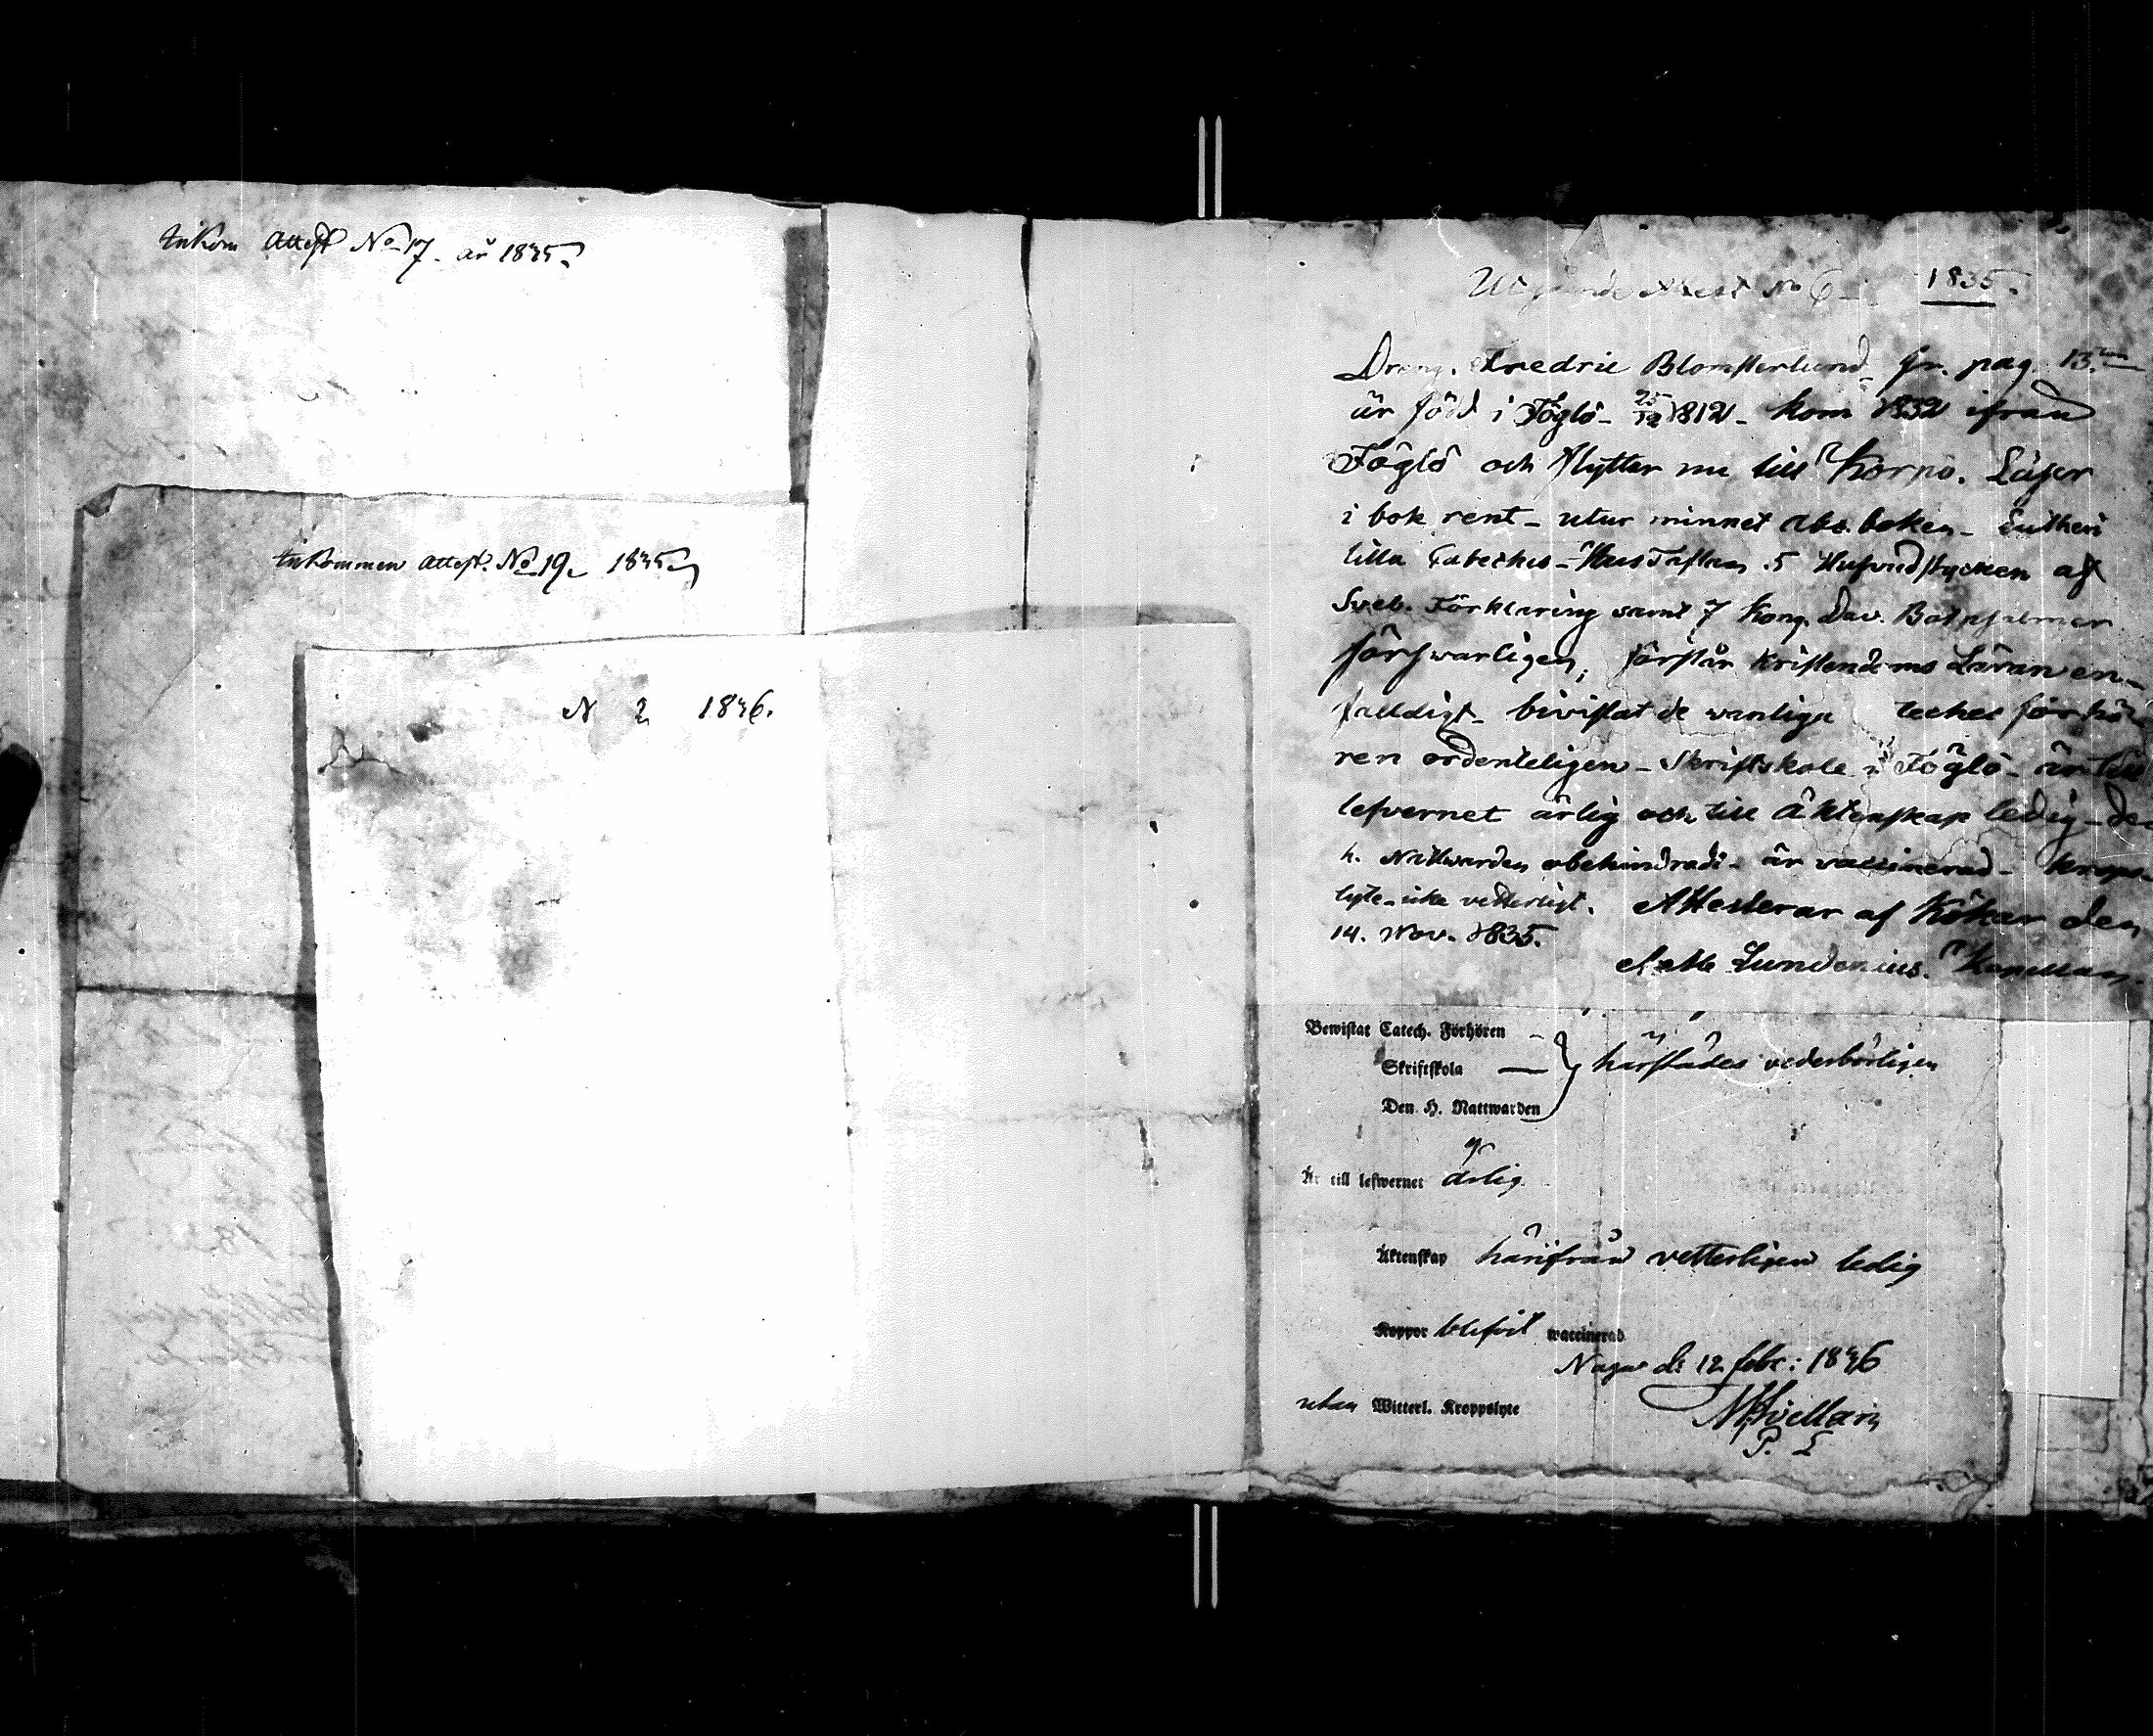 Inkom Attest No 17. år 1835.
Inkommen Attest. No 19. 1835
N 2 1836.
Utgående Attest No 6 - 1835.
Dreng. Fredric Blomsterlund fr. pag. 13.
är född i Föglö - 25/12 1812 - kom 1832 ifrån
Föglö och flyttar nu till Korpo. Läser
i bok rent - utur minnet abc boken - Lutheri
lilla Cateches - Hus Taflan. 5 Hufvudstycken af
Sveb. Förklaring samt 7 Kong. Dav. Botpsalmer
försvarligen; förstår Kristendoms Läran en-
falldigt - bivistat de vanliga Leches förhö-
ren ordenteligen - Skriftskole i Föglö - är till
lefvernet ärlig och till Äktenskap ledig - de
h. Nattvarden obehindradt - är vaccinerad - krops-
lyte - icke vetterligt. Attesterar af Kökar den
14. Nov. 1835.
Lundenius. Kapellan.
Bewistat Catech. Förhören -
Skriftskola —
Den H. Nattwarden
härstädes vederbörligen
Är till lefwernet ärlig
Äktenskap härifrån vetterligen ledig
Koppor blifvit waccinerad
Nagu d: 12 febr: 1836
utan Witterl. Kroppslyte
P. L